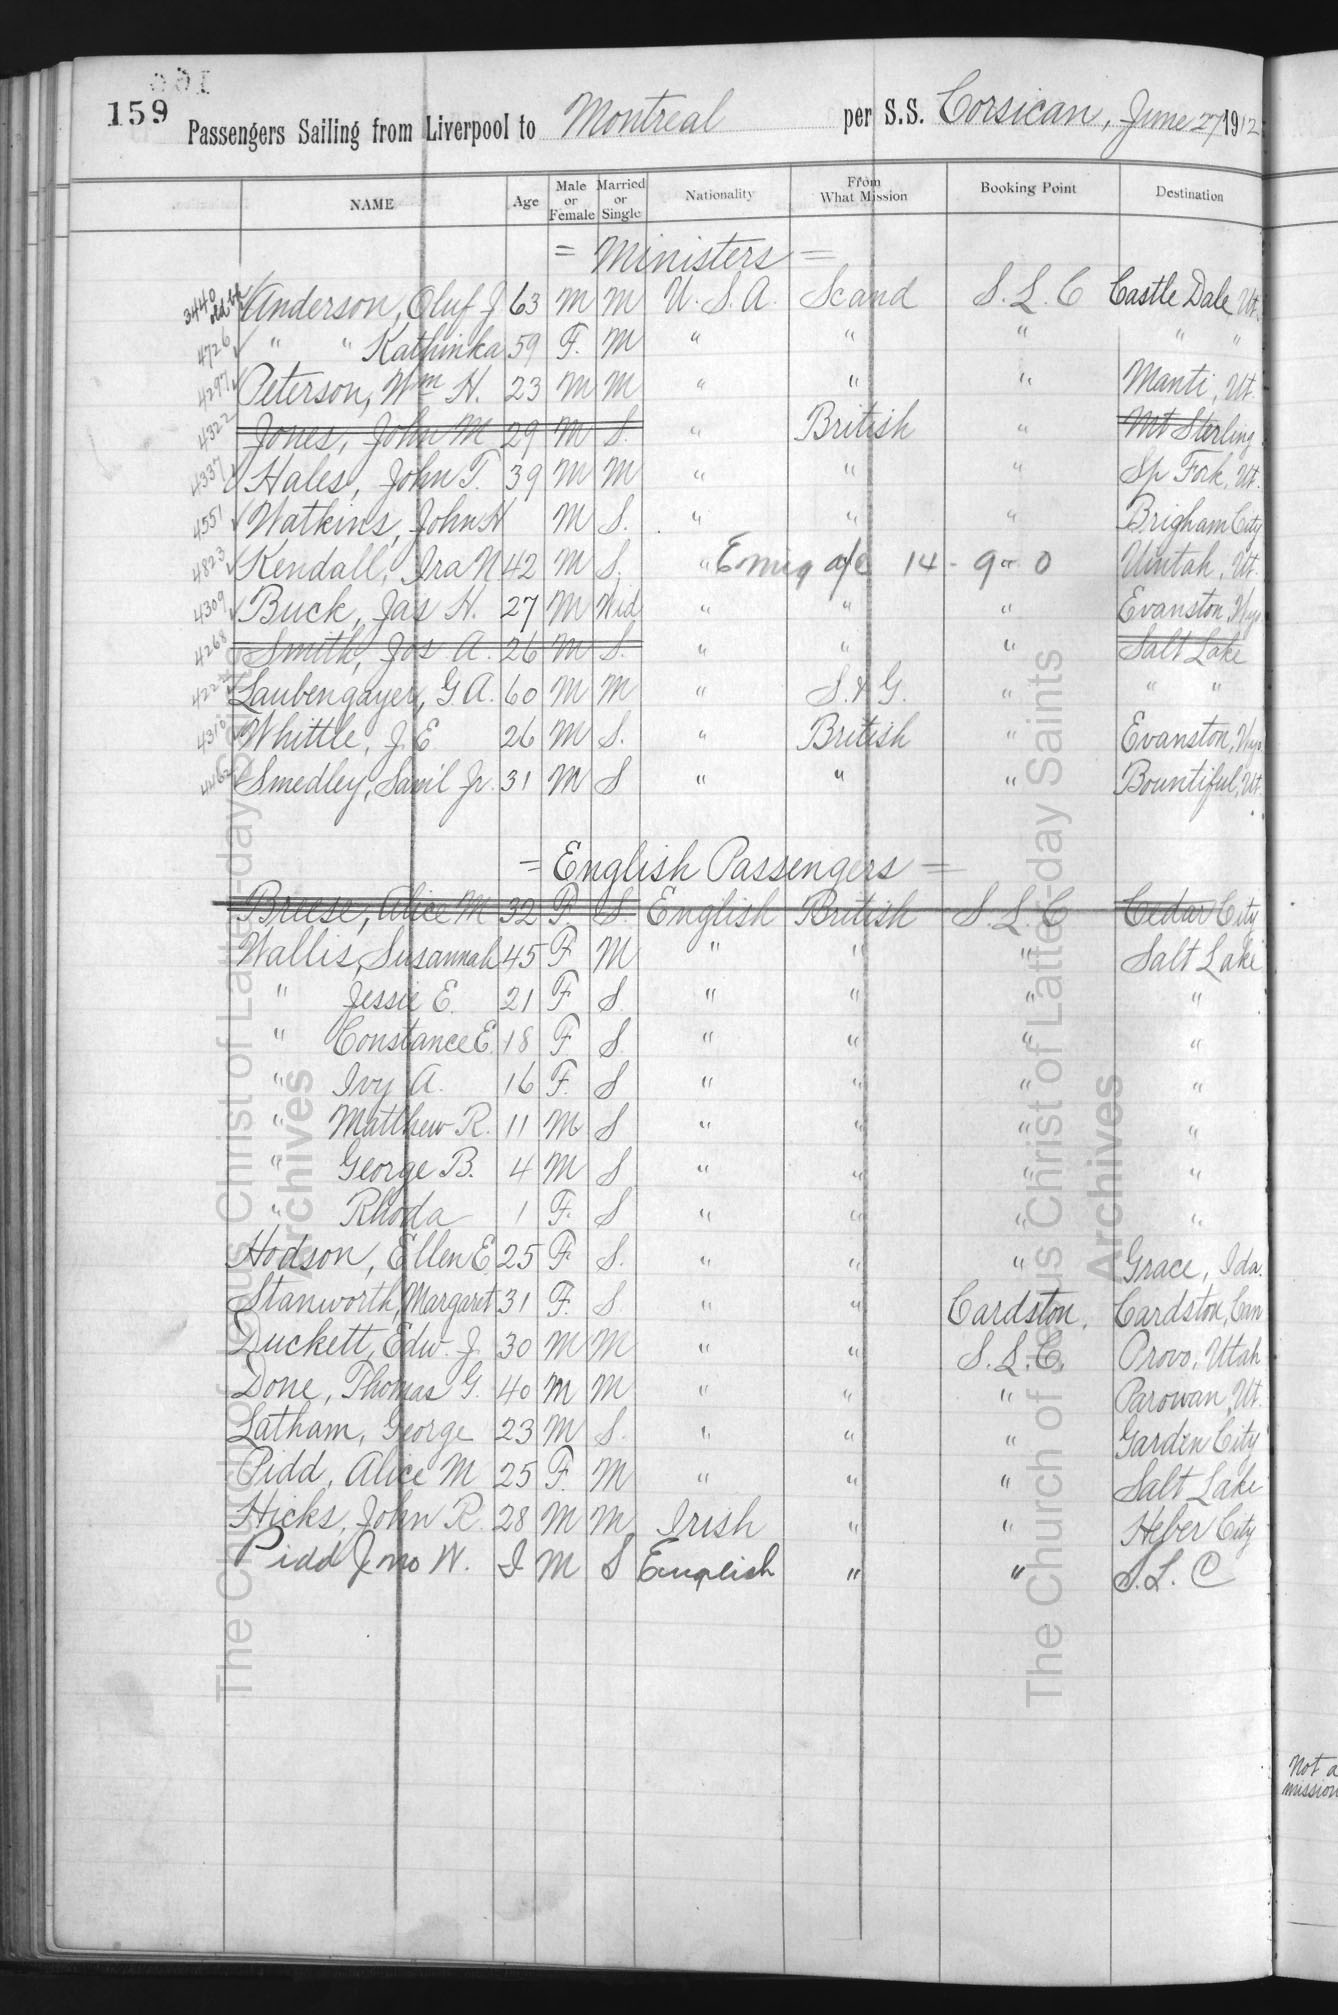 159
Passengers Sailing from Liverpool to Montreal per S.S. Corsican, June 27 1912
NAME Age Male or Female Married or Single Nationality From What Mission Booking Point Destination
= Ministers =
3440 old bk Anderson, Oluf J 63 M M U.S.A. Scand S.L.C Castle Dale, Ut.
4726 " " Kathinka 59 F. M " " " " "
4297 Peterson, Wm H. 23 M M " " " Manti, Ut.
4322 Jones, John M 29 M S. " British " Mt Sterling
4337 Hales, John T. 39 M M " " " Sp Fork, Ut.
4551 Watkins, John H M S. " " " Brigham City
4823 Kendall, Ira N 42 M S. " Emig a/c 14 - 9 - 0 Uintah, Ut.
4309 Buck, Jas H. 27 M Wid " " " Evanston, Wyo.
4268 Smith, Jos A. 26 M S. " " " Salt Lake
4222 Laubengayer, G.A. 60 M M " S. & G. " " "
4310 Whittle, J.E 26 M S. " British " Evanston, Wyo.
4462 Smedley, Saml Jr. 31 M S " " " Bountiful, Ut.
= English Passengers =
Breese, Alice M 32 F. S. English British S.L.C Cedar City
Wallis, Susannah 45 F M " " " Salt Lake
" Jessie E. 21 F S. " " " "
" Constance E. 18 F S " " " "
" Ivy A. 16 F. S " " " "
" Matthew R. 11 M S " " " "
" George B. 4 M S " " " "
" Rhoda 1 F. S " " " "
Hodson, Ellen E 25 F. S. " " " Grace, Ida.
Stanworth, Margaret 31 F. S. " " Cardston, Cardston, Can
Duckett, Edw. J. 30 M M " " S.L.C. Provo, Utah
Done, Thomas G. 40 M M " " " Parowan, Ut.
Latham, George 23 M S. " " " Garden City
Pidd, Alice M 25 F. M " " " Salt Lake
Hicks, John R. 28 M M Irish " " Heber City
Pidd Jno W. I M S English " " S.L.C
Not a
mission
The Church of Jesus Christ of Latter-day Saints
Archives
The Church of Jesus Christ of Latter-day Saints
Archives